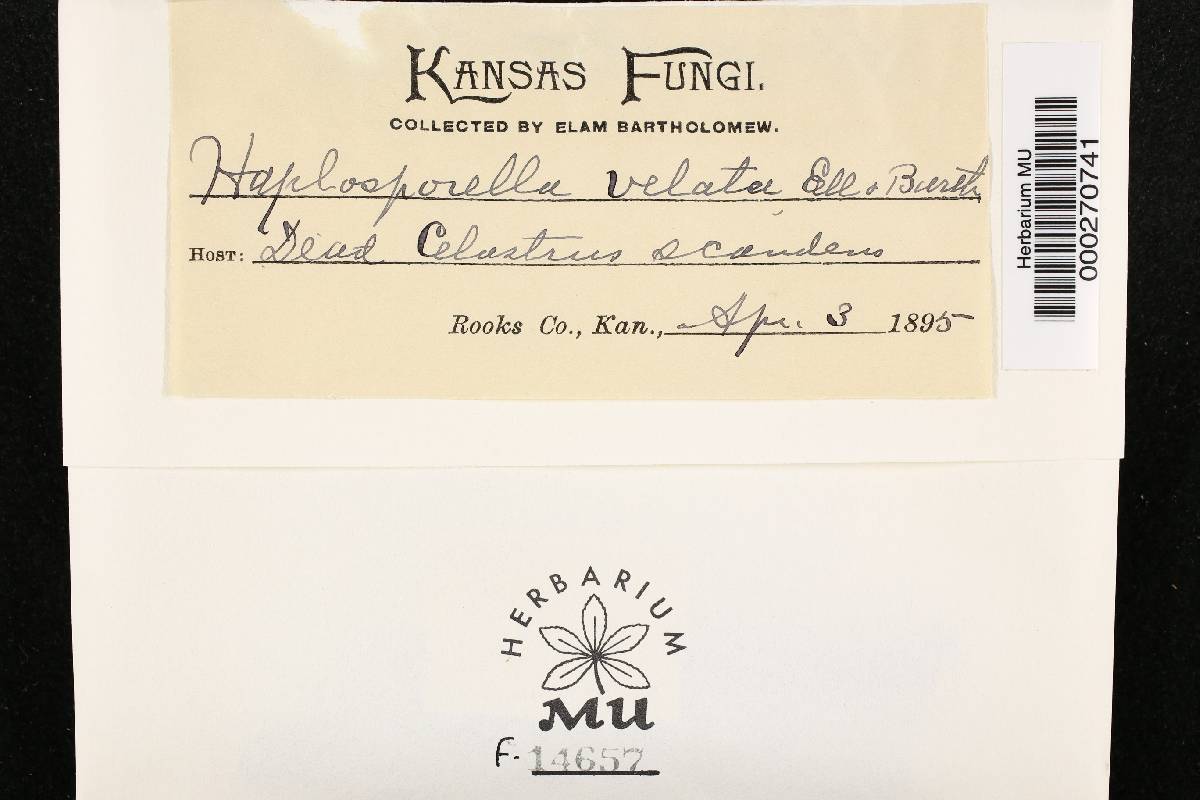 KANSAS FUNGI.
COLLECTED BY ELAM BARTHOLOMEW.
Haplosporella velata Ell & Barth
HOST: Dead Celastrus scandens
Rooks Co., Kan., Apr. 3 1895
Herbarium MU
000270741
HERBARIUM
MU
F. 14657